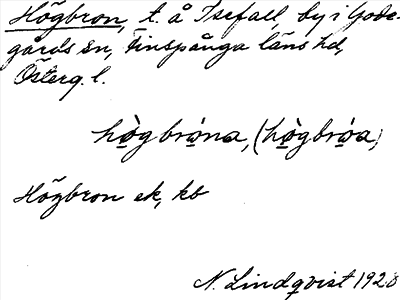 Högbron, t. å Isefall, by i Gode-
gårds sn, Finspånga läns hd,
Österg. l.
hògbróna, (hògbróa)
Högbron ek, kb
N. Lindqvist 1928